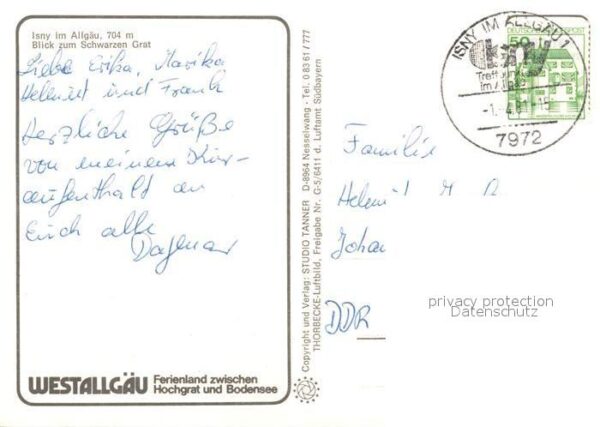 Isny im Allgäu, 704 m
Blick zum Schwarzen Grat
Liebe Erika, Marika
Helmut und Frank
Herzliche Grüße
von meinem Kur-
aufenthalt an
Euch alle
Dagmar
WESTALLGÄU Ferienland zwischen
Hochgrat und Bodensee
Copyright und Verlag: STUDIO TANNER D-8964 Nesselwang - Tel. 0 83 61 / 777
THORBECKE-Luftbild, Freigabe Nr. G-5/6411 d. Luftamt Südbayern
ISNY IM ALLGÄU 1
Treffpunkt
im
7972
50
DEUTSCHE BUNDESPOST
Familie
Helmut
Johan
DDR
privacy protection
Datenschutz